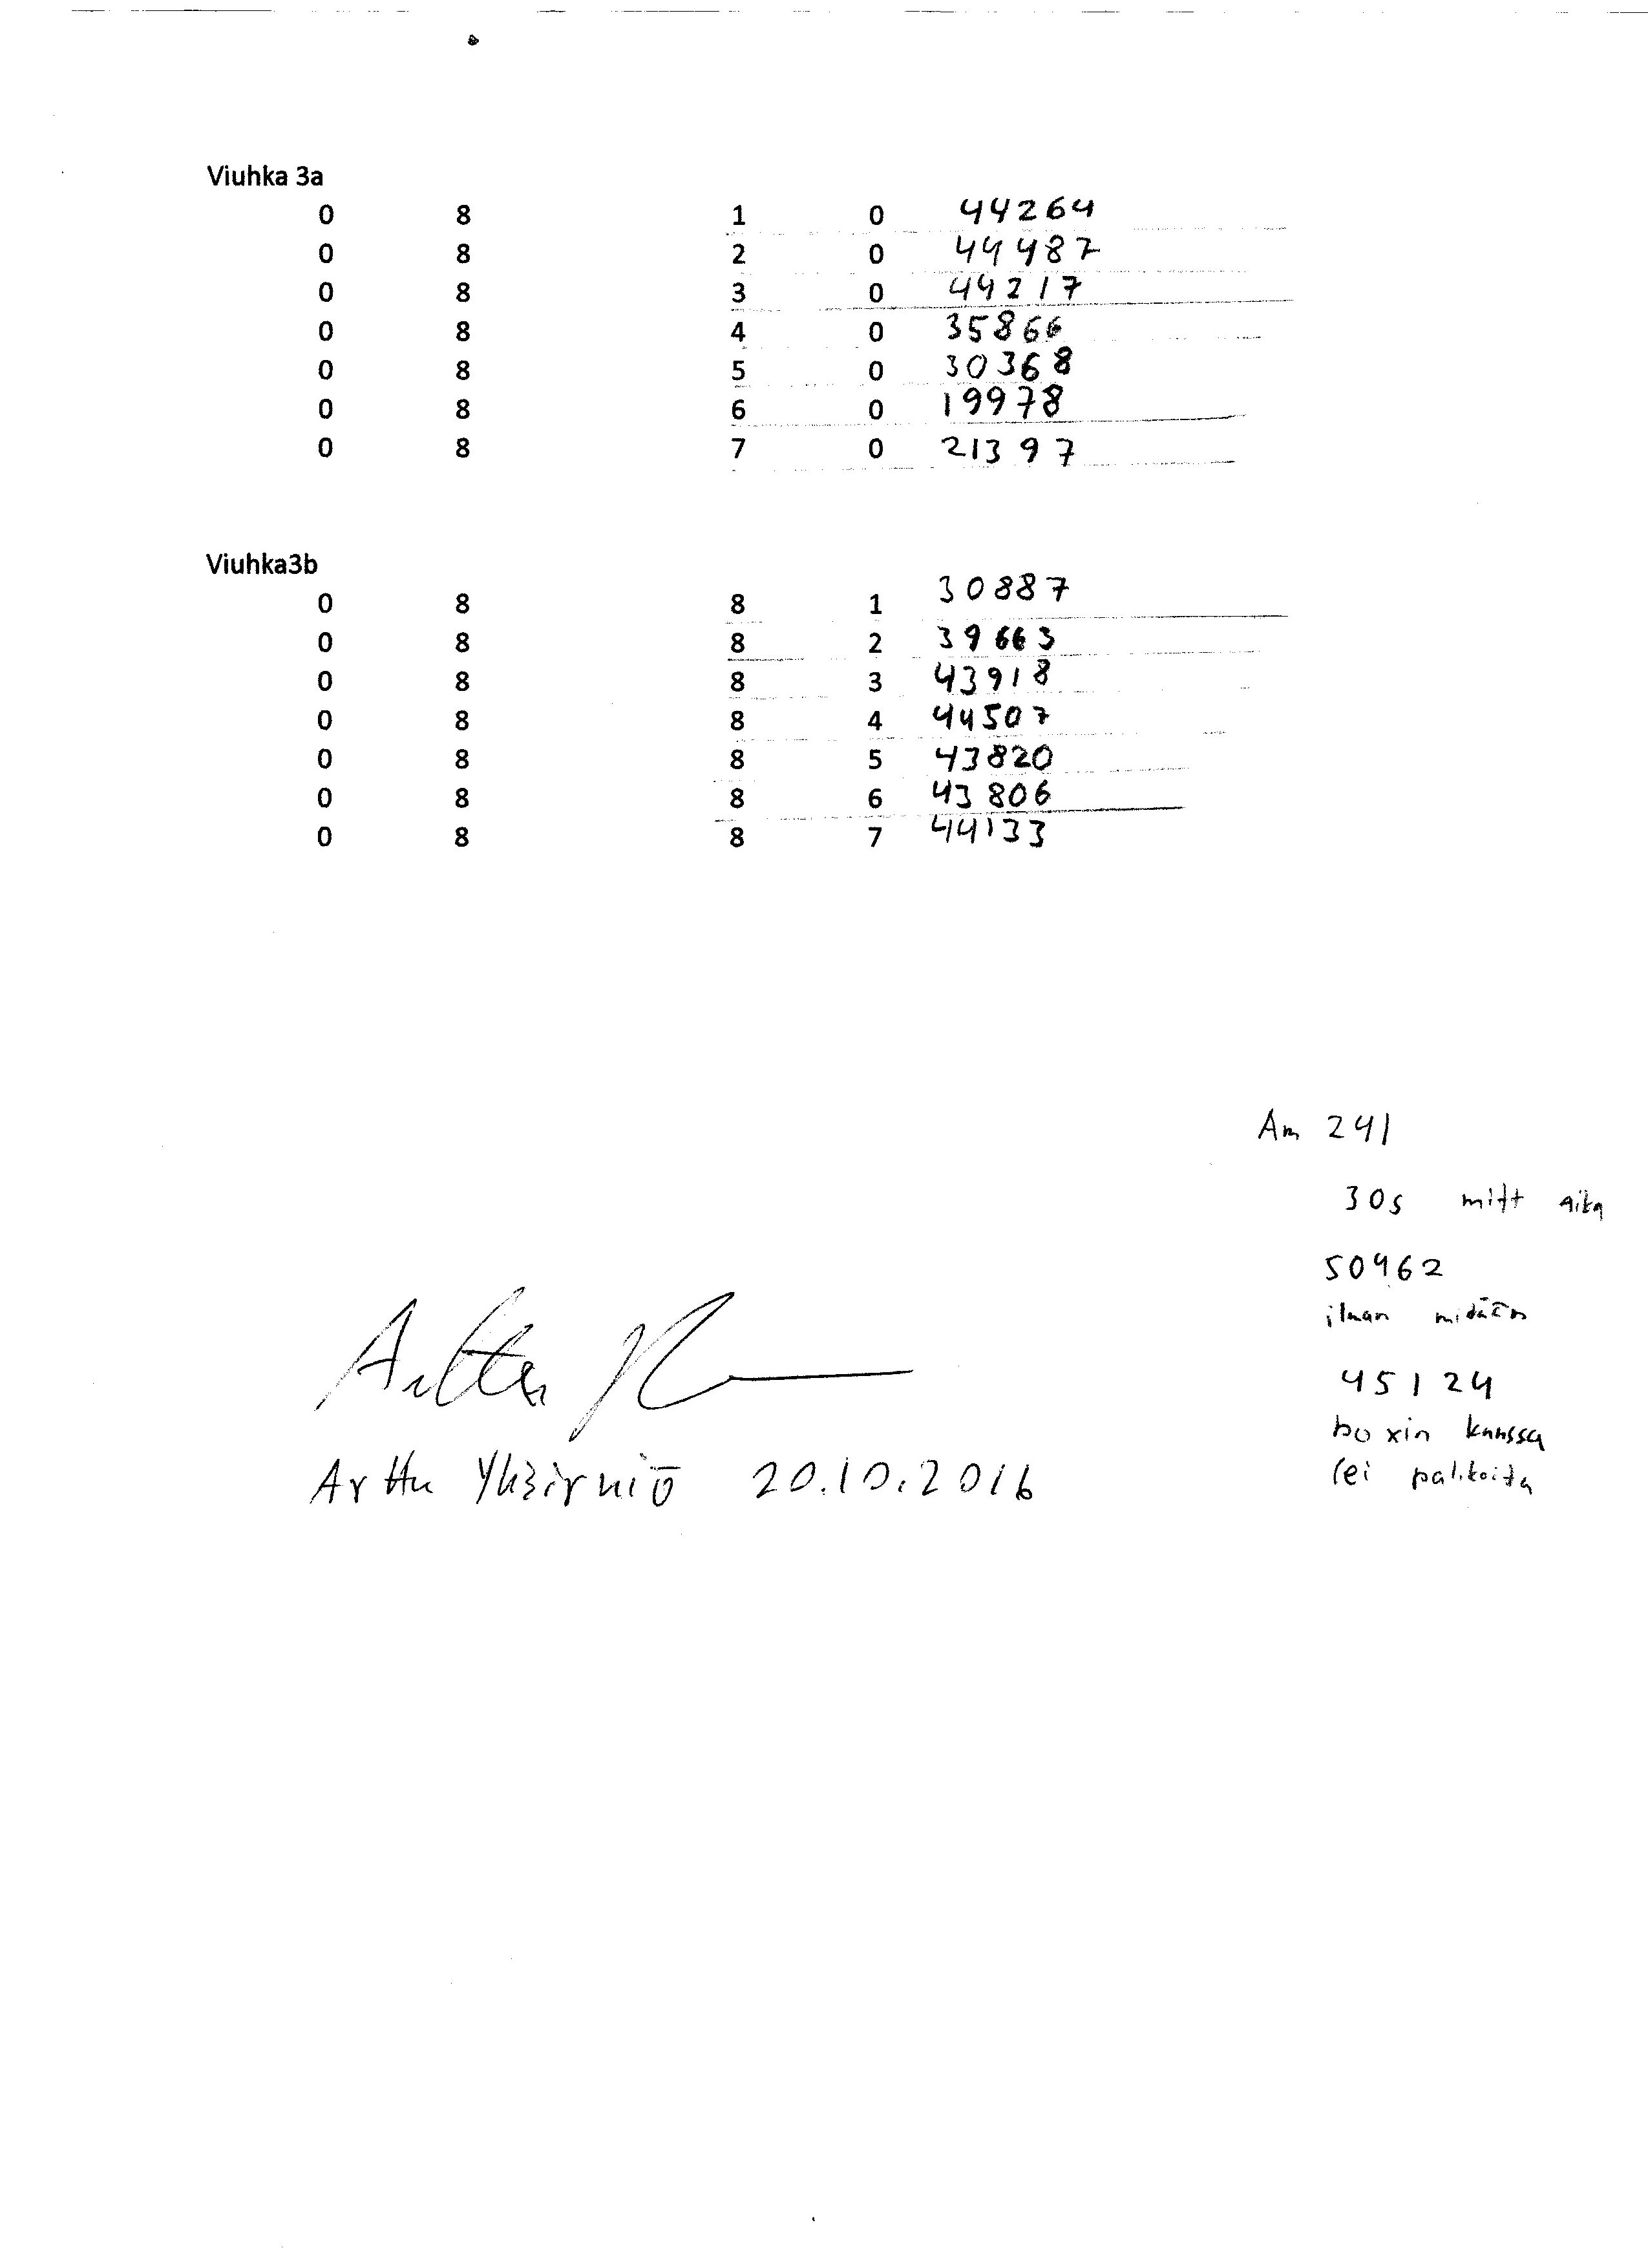 Viuhka 3a
0 8 1 0 44264
0 8 2 0 44487
0 8 3 0 44217
0 8 4 0 35866
0 8 5 0 30368
0 8 6 0 19978
0 8 7 0 21397
Viuhka3b
0 8 8 1 30887
0 8 8 2 39663
0 8 8 3 43918
0 8 8 4 44507
0 8 8 5 43820
0 8 8 6 43806
0 8 8 7 44133
Am 241
30s mitt aika
50962
ilman mitään
45124
boxin kanssa
(ei palikoita
Arttu
Arttu Yksirniö 20.10.2016